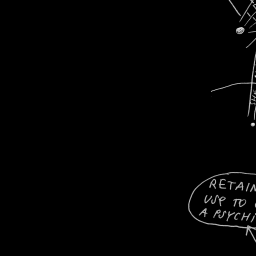 RETAIN
USE TO
A PSYCHI